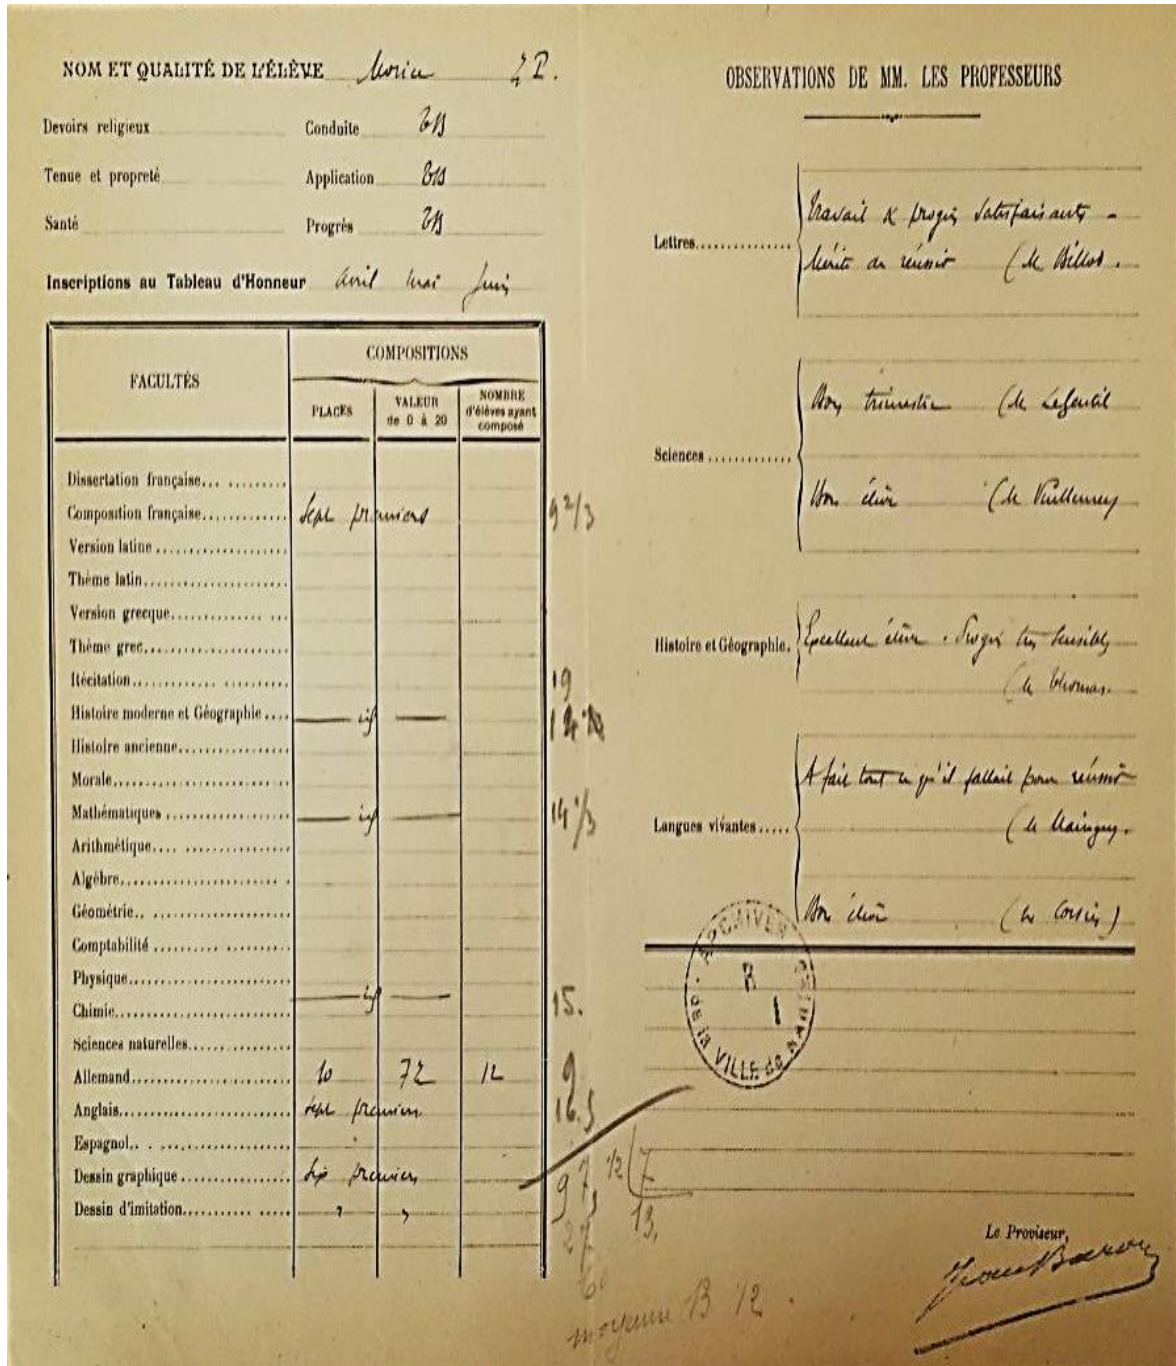 NOM ET QUALITÉ DE L'ÉLÈVE Morin
Devoirs religieux Conduite TB
Tenue et propreté Application TB
Santé Progrès TB
Inscriptions au Tableau d'Honneur avril mai juin
FACULTÉS
COMPOSITIONS
PLACES
VALEUR de 0 à 20
NOMBRE d'élèves ayant composé
Dissertation française
Composition française Sept premiers 9 2/3
Version latine
Thème latin
Version grecque
Thème grec
Récitation 19
Histoire moderne et Géographie
Histoire ancienne
Morale
Mathématiques 14 1/3
Arithmétique
Algèbre
Géométrie
Comptabilité
Physique
Chimie 15.
Sciences naturelles
Allemand 10 72 12 9
Anglais sept premiers 16.5
Espagnol
Dessin graphique six premiers
Dessin d'imitation
97, 1/2 7
13,
27
moyenne B 1/2.
OBSERVATIONS DE MM. LES PROFESSEURS
Lettres
Travail & progrès satisfaisants -
Mérite de réussir (M. Billot.
Sciences
Bon trimestre (M. Legentil
Bon élève (M. Vuillemey
Histoire et Géographie.
Excellent élève. Progrès très sensibles
(M. Thomas.
Langues vivantes
A fait tout ce qu'il fallait pour réussir
Bon élève
ARCHIVES de la VILLE de NANTES
R
1
Le Proviseur,